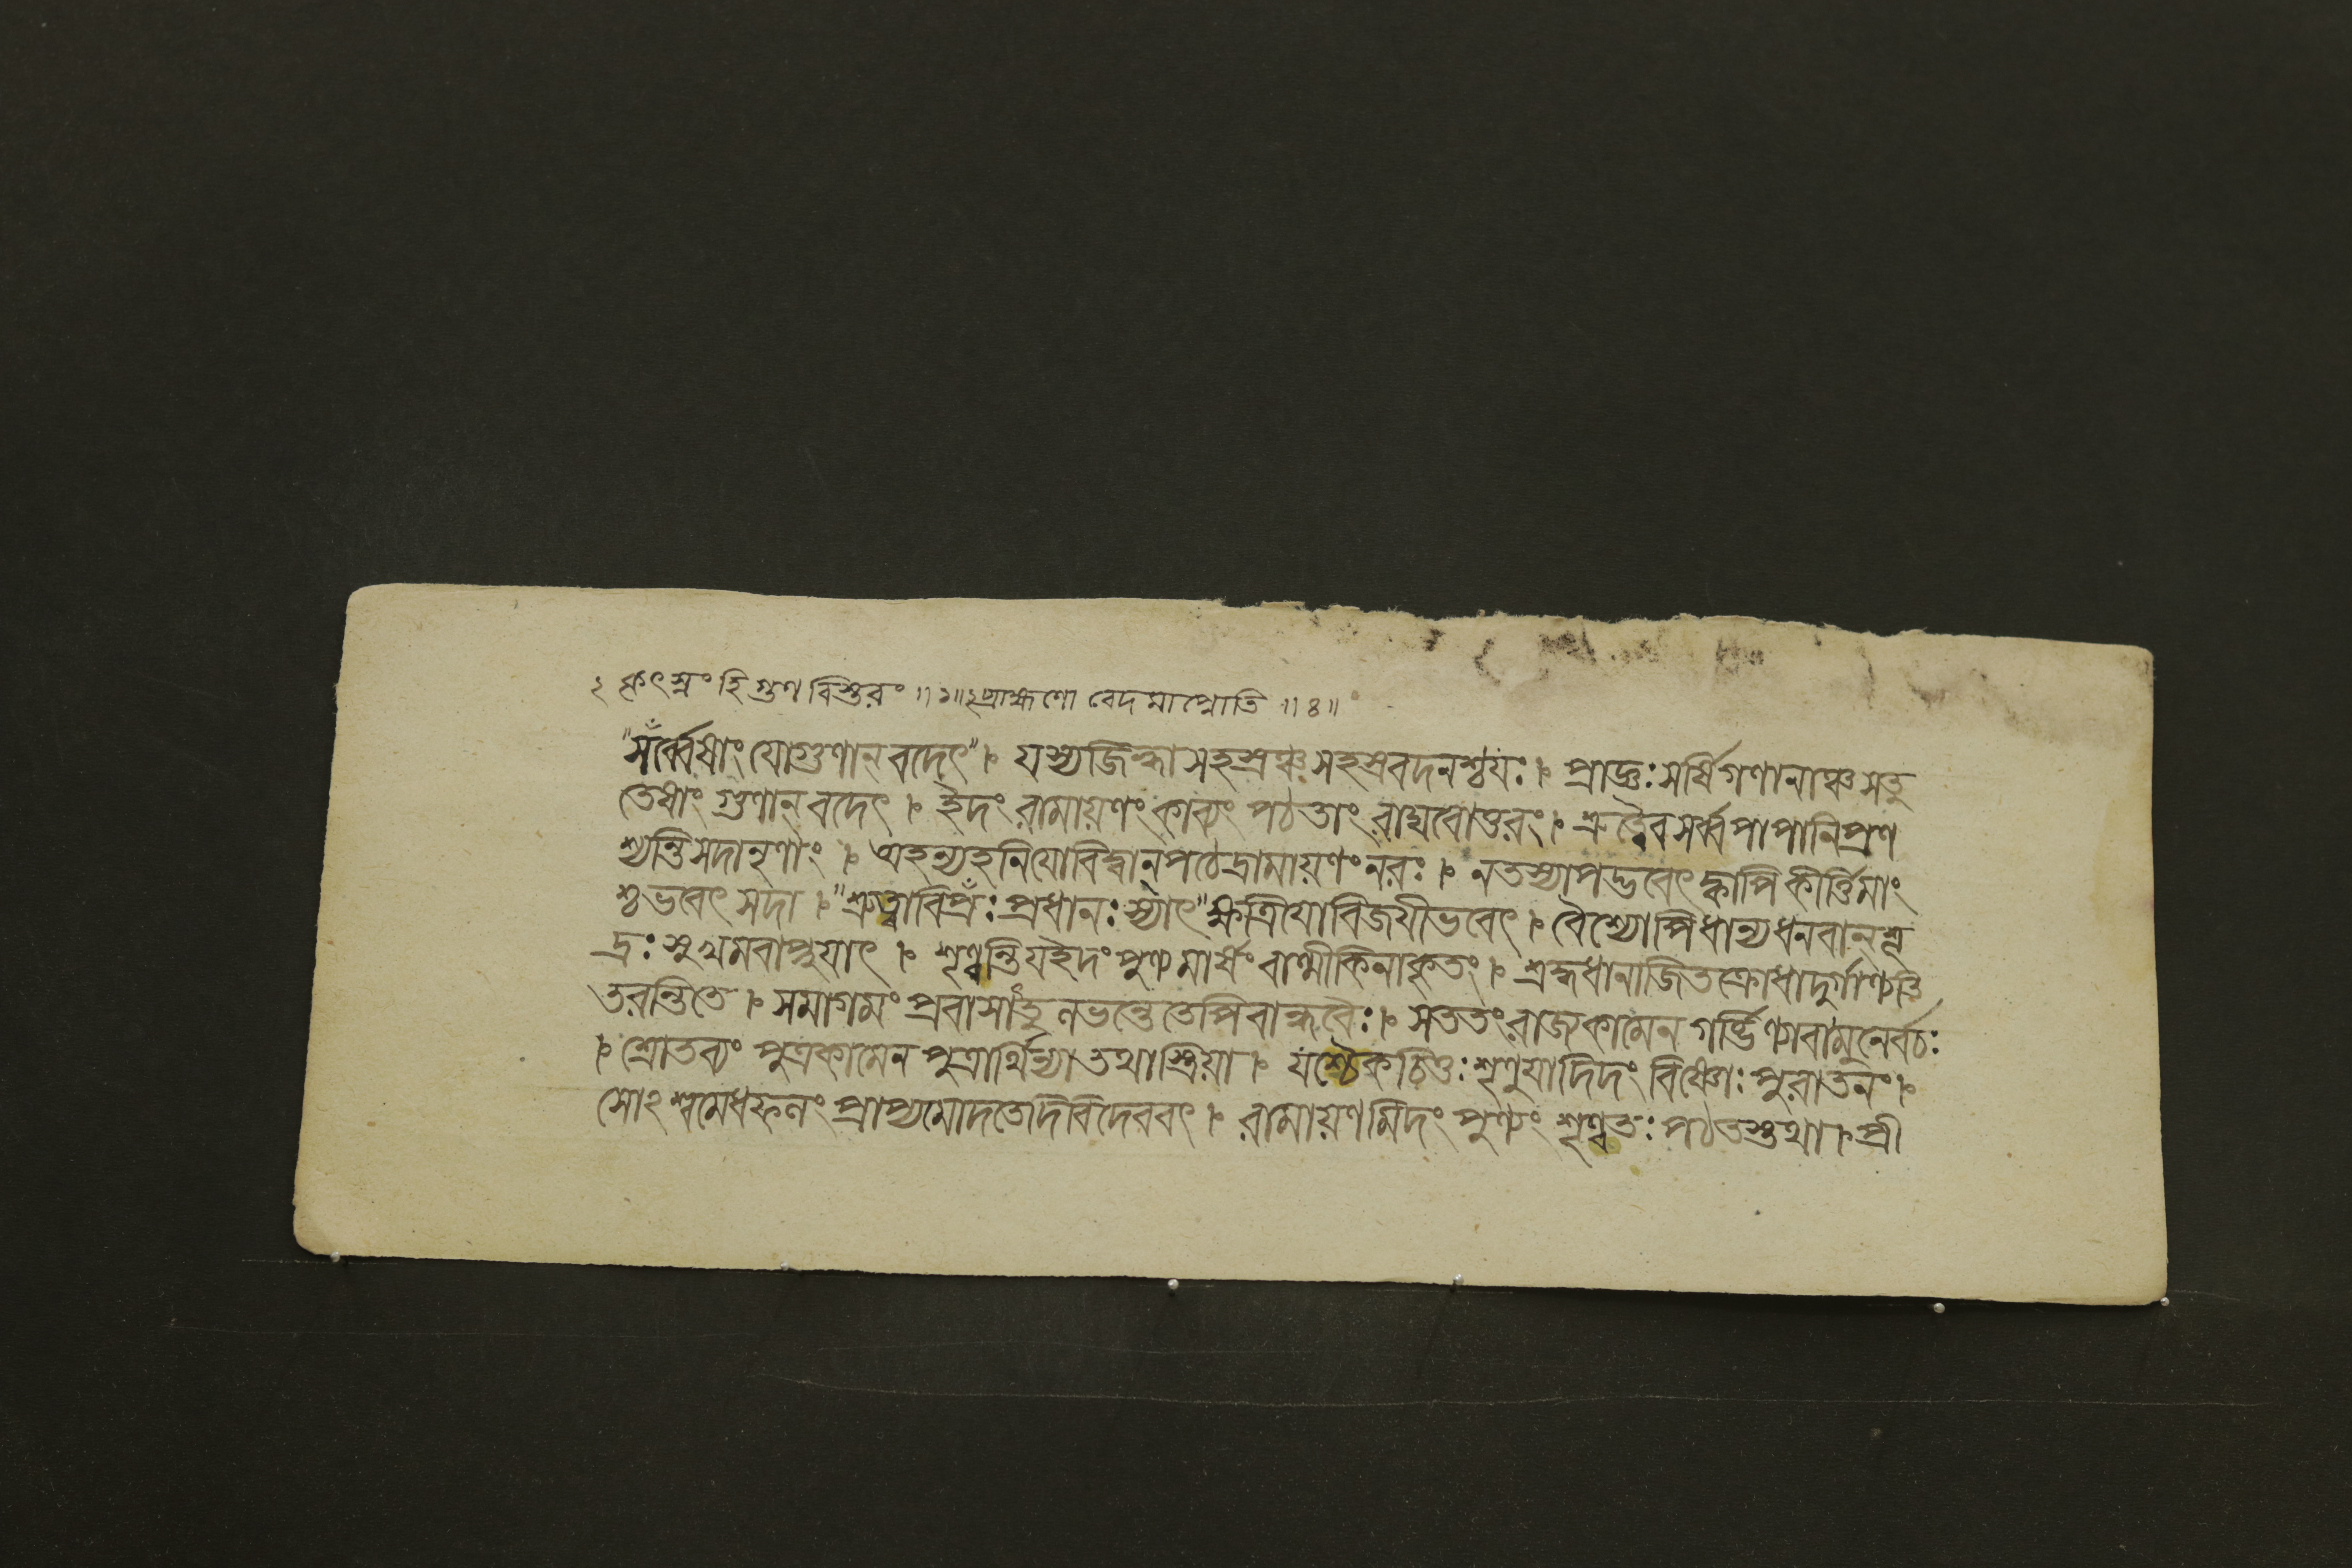 ২ কৃৎস্নং হি গুণ বিস্তরং ॥১॥ ২ ব্রাহ্মণো বেদ মাপ্নোতি ॥৪॥
"সঁর্ব্বেষাং যোগুণান্ বদেৎ" ৷ যস্যজিহ্বাসহস্রঞ্চ সহস্রবদনশ্চযঃ ৷ প্রাজ্ঞঃ সর্ষিগণানাঞ্চ সতু
তেষাং গুণান্ বদেৎ ৷ ইদং রামায়ণং কাব্যং পঠতাং রাঘবোত্তরং ৷ শ্রুত্বৈব সর্ব্বপাপানিপ্রণ
শ্যন্তিসদানৃণাং ৷ অহন্যহনিযোবিদ্বান্ পঠেদ্রামায়ণং নরঃ ৷ নতস্যাপদ্ভবেৎ ক্কাপি কীর্ত্তিমাং
শ্চভবেৎ সদা ৷ "শ্রুত্বাবিপ্রঁঃ প্রধানঃ স্যাৎ" ক্ষত্রিযোবিজযীভবেৎ ৷ বৈশ্যোপিধান্যধনবান্ শূ
দ্রঃ সুখমবাপ্নুযাৎ ৷ শৃণ্বন্তিযইদং পুণ্যমার্ষং বাল্মীকিনাকৃতং ৷ শ্রদ্দধানাজিতক্রোধাদুর্গাণ্যতি
তরন্তিতে ৷ সমাগমং প্রবাসাঁতু লভন্তে তেপিবান্ধবৈঃ ৷ সততং রাজ্যকামেন গর্ব্ভিণ্যাবামুনের্বচঃ
৷ শ্রোতব্যং পুত্রকামেন পুত্রার্থিন্যাতথাস্ত্রিয়া ৷ যশ্চৈকচিত্তঃ শৃণুযাদিদং বিষ্ণোঃ পুরাতনং ৷
সোঽশ্বমেধফলং প্রাপ্যমোদতেদিবিদেববৎ ৷ রামায়ণমিদং পুণ্যং শৃণ্বতঃ পঠতস্তথা ৷ প্রী